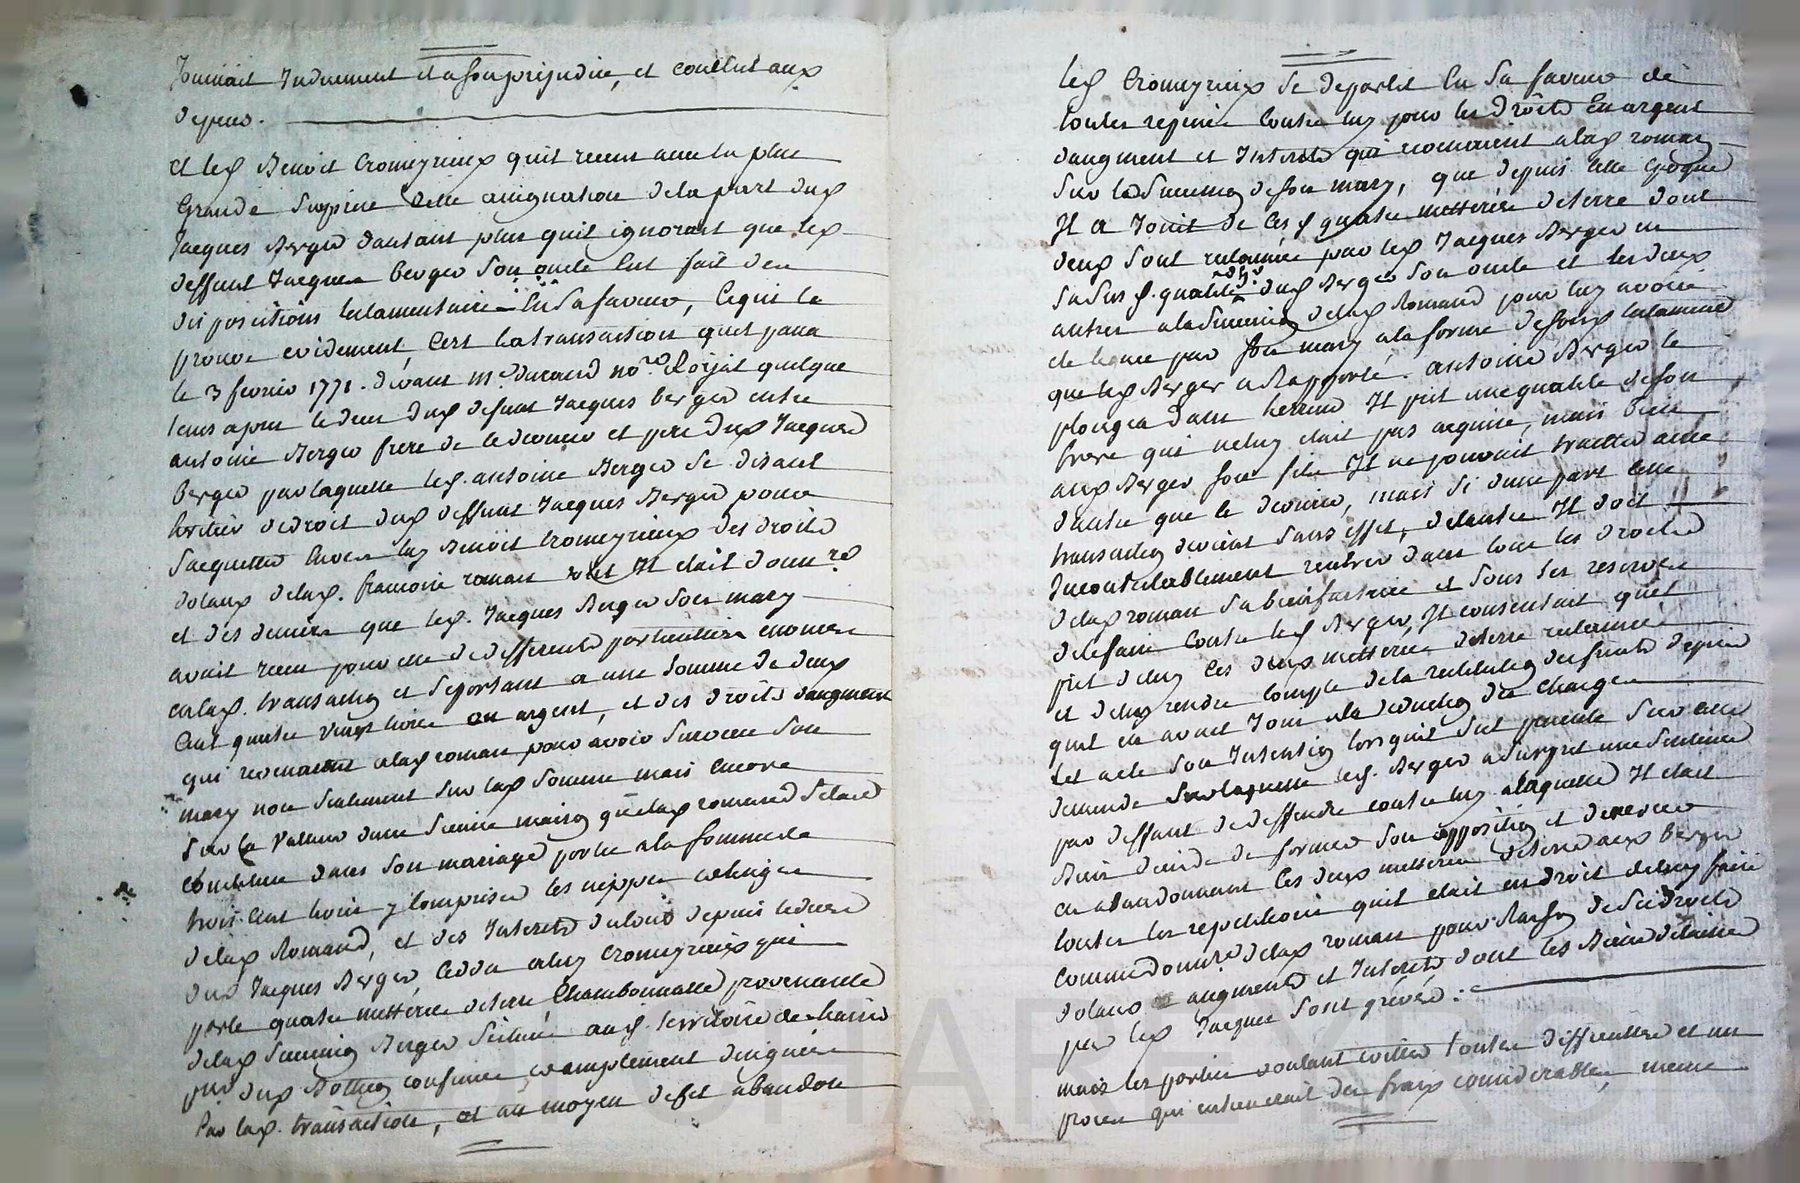 Jouissait Induement et a son prejudice, et conclut aux
depens.
et led. Benoit Cromeyrieux quil avec la plus
Grande Surprise cette assignation de la part dud.
Jacques Berger dautant plus quil ignorait que led.
deffunt Jacques berger son oncle eut fait des
dispositions testamentaires En sa faveur, Ce qui le
prouve evidement, Cest la transaction quil passa
le 3 fevrier 1771. devant me. durand nore. Royal quelque
tems apres le deces dud. defunt Jacques berger entre
antoine Berger frere de le dernier et pere dud. Jacques
Berger par laquelle led. antoine Berger se disant
heritier de droit dud. deffunt Jacques Berger pour
Sacquitter envers luy Benoit Cromeyrieux des droits
dotaux de lad. francoise roman dont Il etait donnre.
et des deniers que led. Jacques Berger son mary
avait recu pour elle de differents particuliers enoncés
en lad. transaction et se portant a une somme de deux
Cent quatre vingt livres en argent, et des droits daugment
qui revenaient a lad. roman pour avoir survecu son
mary non seulement sur lad. somme mais encore
sur la valeur dune sienne maison que lad. romand setait
constituée dans son mariage portée a la somme de
trois cent livres y compris les nippes et linges
de lad. Romand, et des Interets du tout depuis le deces
dud. Jacques Berger, ceda a luy Cromeyrieux qui
parle quatre metterées de terre Chambonnasse provenante
de lad. succession Berger située aud. territoire de
par dud. confinée et amplement designée
Par lad. transaction, et au moyen de cet abandon
led. Cromeyrieux se departit En sa faveur de
toutes repetition contre luy pour les droits En argent
daugment et Interets qui revenaient a lad. roman
sur la succession de son mary, que depuis cette epoque
Il a Jouit de ces d. quatre metterées de terre dont
deux sont reclamées par led. Jacques Berger en
sa susd. qualité dud. Berger son oncle et les deux
autres a la succession de lad. Romand pour luy avoir
eté par son mary a la forme de son testament
que led. Berger a Rapporté. antoine Berger le
plongea dans lerreur Il prit une qualité de son
frere qui ne luy etait pas acquise, mais bien
aud. Berger son fils Il ne pouvait traitter avec
dautre que le dernier, mais si dune part cette
transaction devient sans effet, de lautre Il doit
Incontestablement rentrer dans tous les droits
de lad. roman sa bienfaitrice et sous les reserves
de les faire contre led. Berger, Il consentait quil
prit de luy ces deux metterées de terre reclamées
et de luy rendre compte de la restitution des fruits depuis
quil en avait Joui a la deduction des charges
tel acte son Intention lorsquil fut sur cette
demande sur laquelle led. Berger a surpris une sentence
par deffaut de deffendre contre luy a laquelle Il etait
bien decidé de former son opposition et dexercer
en abandonnant les deux metterées de terre aud. Berger
toutes les repetitions quil etait en droit de luy faire
comme donnre. de lad. roman pour Raison de ses droits
dotaux augments et Interets dont les Biens delaissés
par led. Jacques sont grevés.
mais les parties voulant eviter toutes difficultés et un
proces qui entrenerait des frais considerables, meme